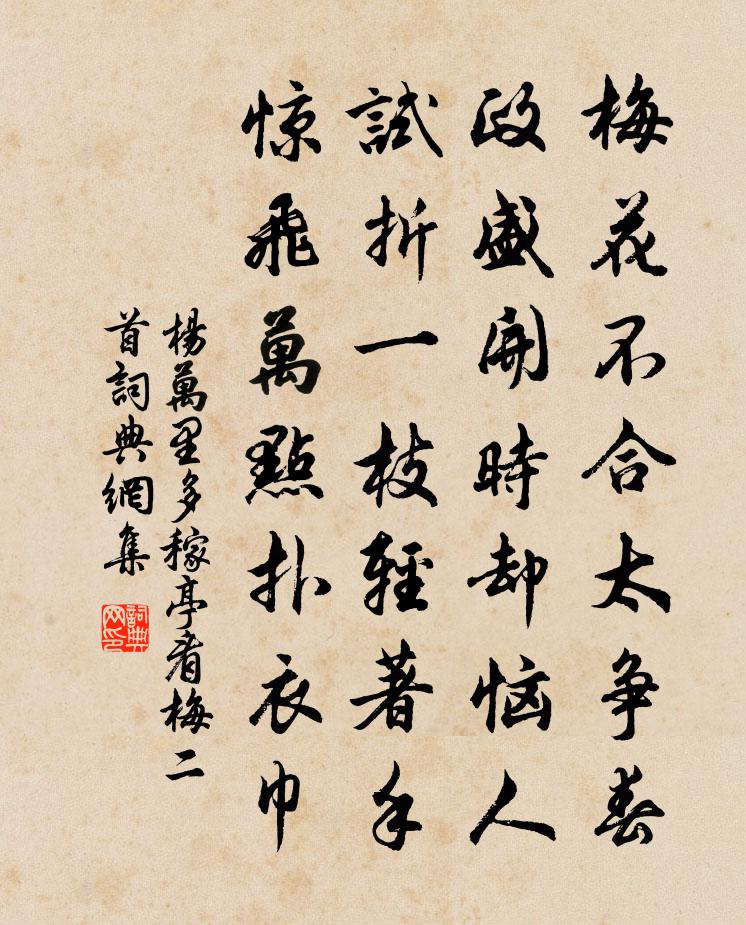 梅花不合太争春
政盛開時却恼人
試折一枝輕著手
惊飛萬點扑衣巾
楊萬里多稼亭看梅二
首詞典網集
詞典網印